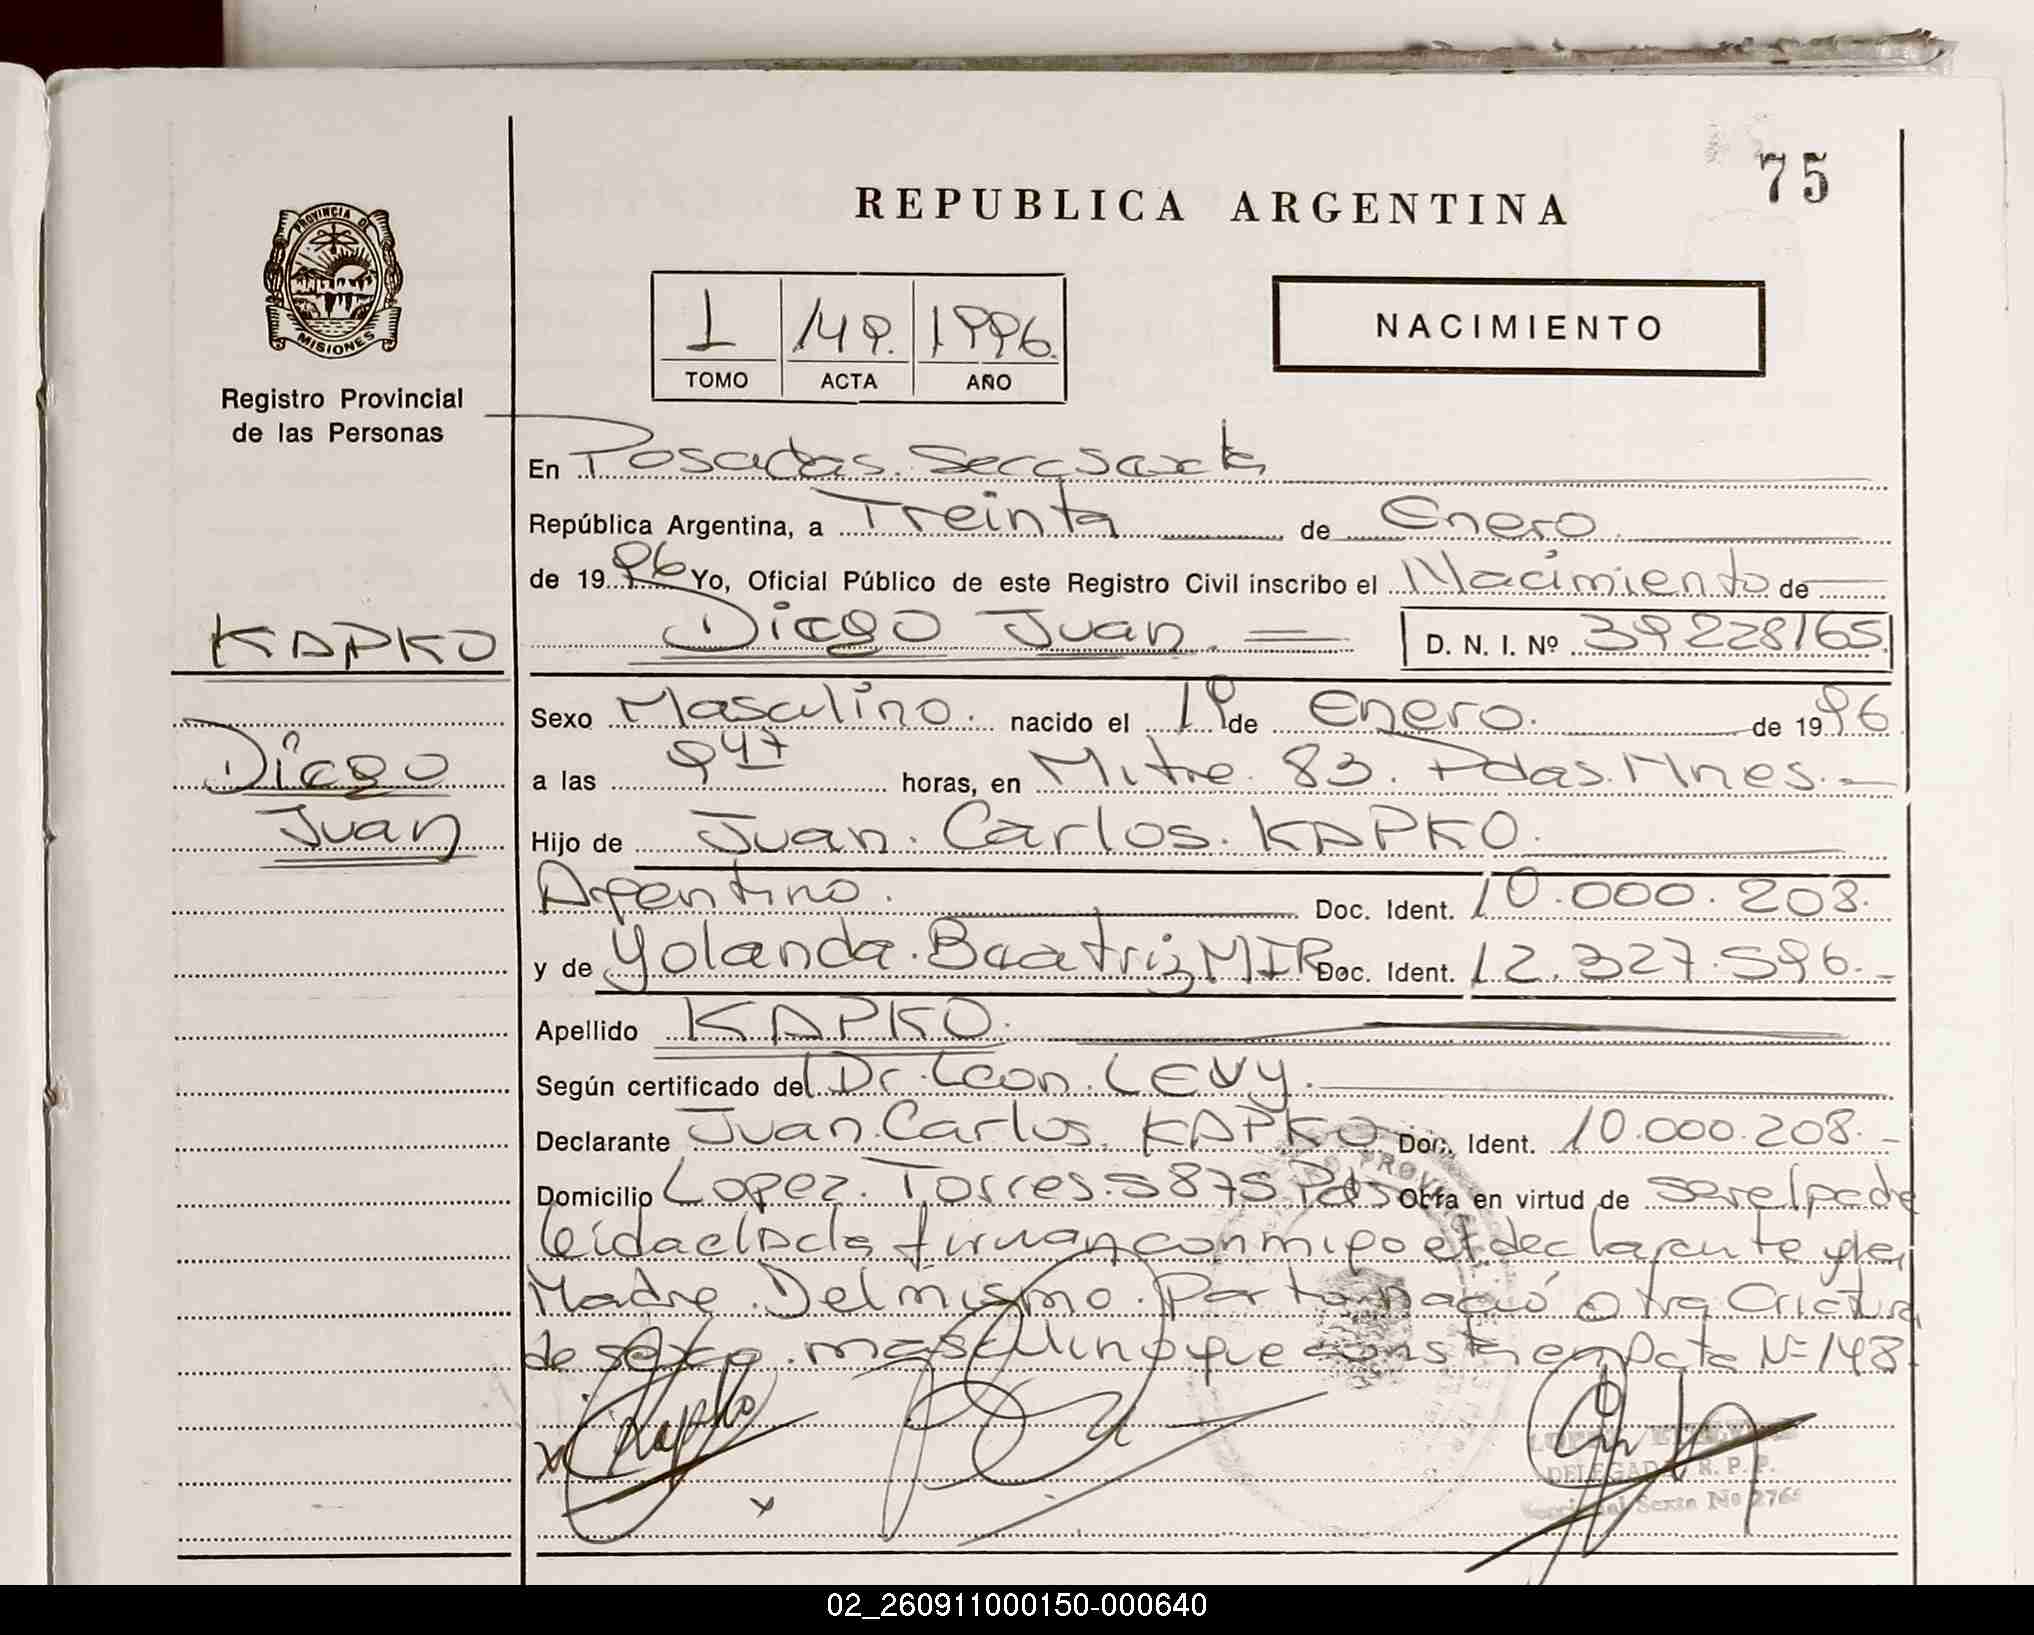 75
REPUBLICA ARGENTINA
PROVINCIA DE
MISIONES
Registro Provincial
de las Personas
1 149. 1996.
TOMO ACTA AÑO
NACIMIENTO
En Posadas. Secc Sexta
República Argentina, a Treinta de Enero
de 19 96 Yo, Oficial Público de este Registro Civil inscribo el Nacimiento de
KAPKO
Diego Juan. D. N. I. Nº 39228165
Sexo Masculino. nacido el 1º de Enero. de 19 96
Diego
Juan
a las 9 47 horas, en Mitre 83. Pdas. Mnes.-
Hijo de Juan. Carlos. KAPKO.
Argentino. Doc. Ident. 10.000.208.
y de Yolanda. Beatriz MIR Doc. Ident. 12.327.596.-
Apellido KAPKO.
Según certificado del Dr. Leon. LEVY.
Declarante Juan. Carlos. KAPKO Doc. Ident. 10.000.208.-
Domicilio Lopez. Torres. 5875 Pdas Obra en virtud de ser el padre
leida el Acta firman conmigo el declarante y la
Madre. Del mismo. Parto nació otra Criatura
de sexo. masculino que consta en Acta Nº 148.
Kapko
DELEGADA R. P. P.
Seccional Sexta Nº 276
02_260911000150-000640